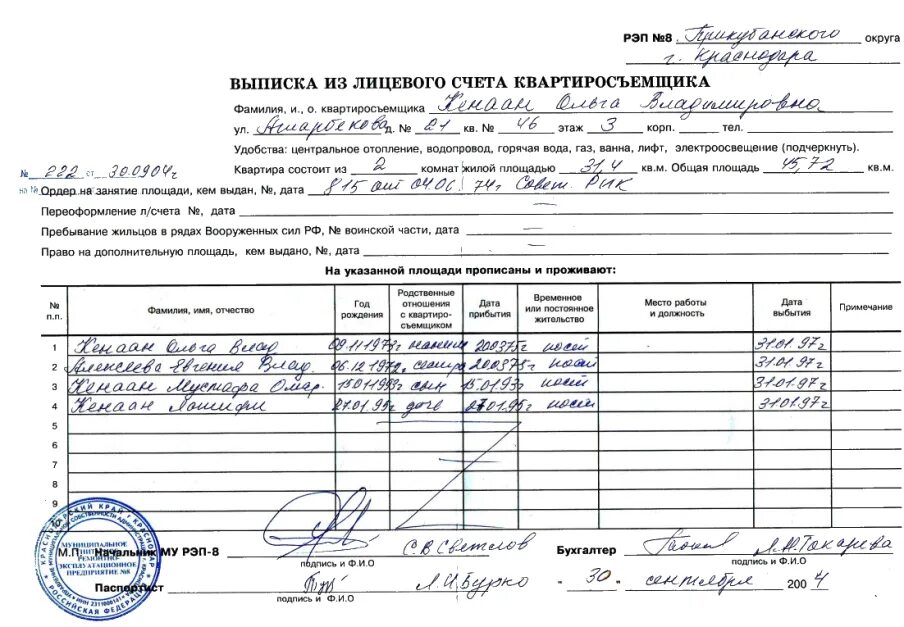 РЭП №8 Прикубанского округа
г. Краснодара
ВЫПИСКА ИЗ ЛИЦЕВОГО СЧЕТА КВАРТИРОСЪЕМЩИКА
Фамилия, и., о. квартиросъемщика Кенаан Ольга Владимировна
ул. Атарбекова д. № 21 кв. № 46 этаж 3 корп. тел.
Удобства: центральное отопление, водопровод, горячая вода, газ, ванна, лифт, электроосвещение (подчеркнуть).
№ 222 от 30.09.04г
Квартира состоит из 2 комнат жилой площадью 31,4 кв.м. Общая площадь 45,72 кв.м.
на №
Ордер на занятие площади, кем выдан, №, дата 815 от 04.06.74г Совет. РИК
Переоформление л/счета №, дата —
Пребывание жильцов в рядах Вооруженных сил РФ, № воинской части, дата —
Право на дополнительную площадь, кем выдано, №, дата —
На указанной площади прописаны и проживают:
№ п.п. Фамилия, имя, отчество Год рождения Родственные отношения с квартиро-съемщиком Дата прибытия Временное или постоянное жительство Место работы и должность Дата выбытия Примечание
1 Кенаан Ольга Влад 200375г пост 31.01.97г
2 Алексеева Евгения Влад. сестра 200375г пост 31.01.97г
3 Кенаан Мустафа Омар. 15.01.1993г сын 15.01.93г пост 31.01.97г
4 Кенаан 27.01.95г дочь 27.01.95г пост 31.01.97г
5
6
7
8
9
М.П. Начальник МУ РЭП-8 С.В Светлов Бухгалтер Л.М.Токарева
подпись и Ф.И.О подпись и Ф.И.О
Паспортист Л.И.Бурко - 30 - сентября 2004
подпись и Ф.И.О
КРАСНОДАРСКИЙ КРАЙ г. КРАСНОДАР
РОССИЙСКАЯ ФЕДЕРАЦИЯ
МУНИЦИПАЛЬНОЕ
РЕМОНТНО-
ЭКСПЛУАТАЦИОННОЕ
ПРЕДПРИЯТИЕ №8